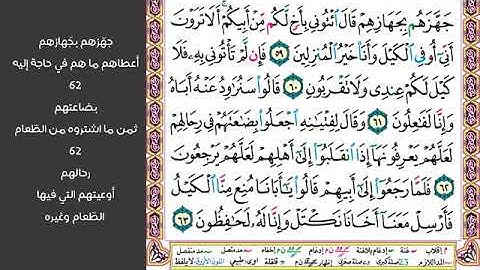 جَهَّزَهُم بِجَهَازِهِمْ قَالَ ائْتُونِي بِأَخٍ لَّكُم مِّنْ أَبِيكُمْ أَلَا تَرَوْنَ
أَنِّي أُوفِي الْكَيْلَ وَأَنَا خَيْرُ الْمُنزِلِينَ ٥٩ فَإِن لَّمْ تَأْتُونِي بِهِ فَلَا
كَيْلَ لَكُمْ عِندِي وَلَا تَقْرَبُونِ ٦٠ قَالُوا سَنُرَاوِدُ عَنْهُ أَبَاهُ
وَإِنَّا لَفَاعِلُونَ ٦١ وَقَالَ لِفِتْيَانِهِ اجْعَلُوا بِضَاعَتَهُمْ فِي رِحَالِهِمْ
لَعَلَّهُمْ يَعْرِفُونَهَا إِذَا انقَلَبُوا إِلَىٰ أَهْلِهِمْ لَعَلَّهُمْ يَرْجِعُونَ
٦٢ فَلَمَّا رَجَعُوا إِلَىٰ أَبِيهِمْ قَالُوا يَا أَبَانَا مُنِعَ مِنَّا الْكَيْلُ
فَأَرْسِلْ مَعَنَا أَخَانَا نَكْتَلْ وَإِنَّا لَهُ لَحَافِظُونَ ٦٣
جهّزهم بجَهازهم
أعطاهم ما هم في حاجة إليه
62
بضاعتهم
ثمن ما اشتروه من الطّعام
62
رحالهم
أوعيتهم التي فيها
الطّعام وغيره